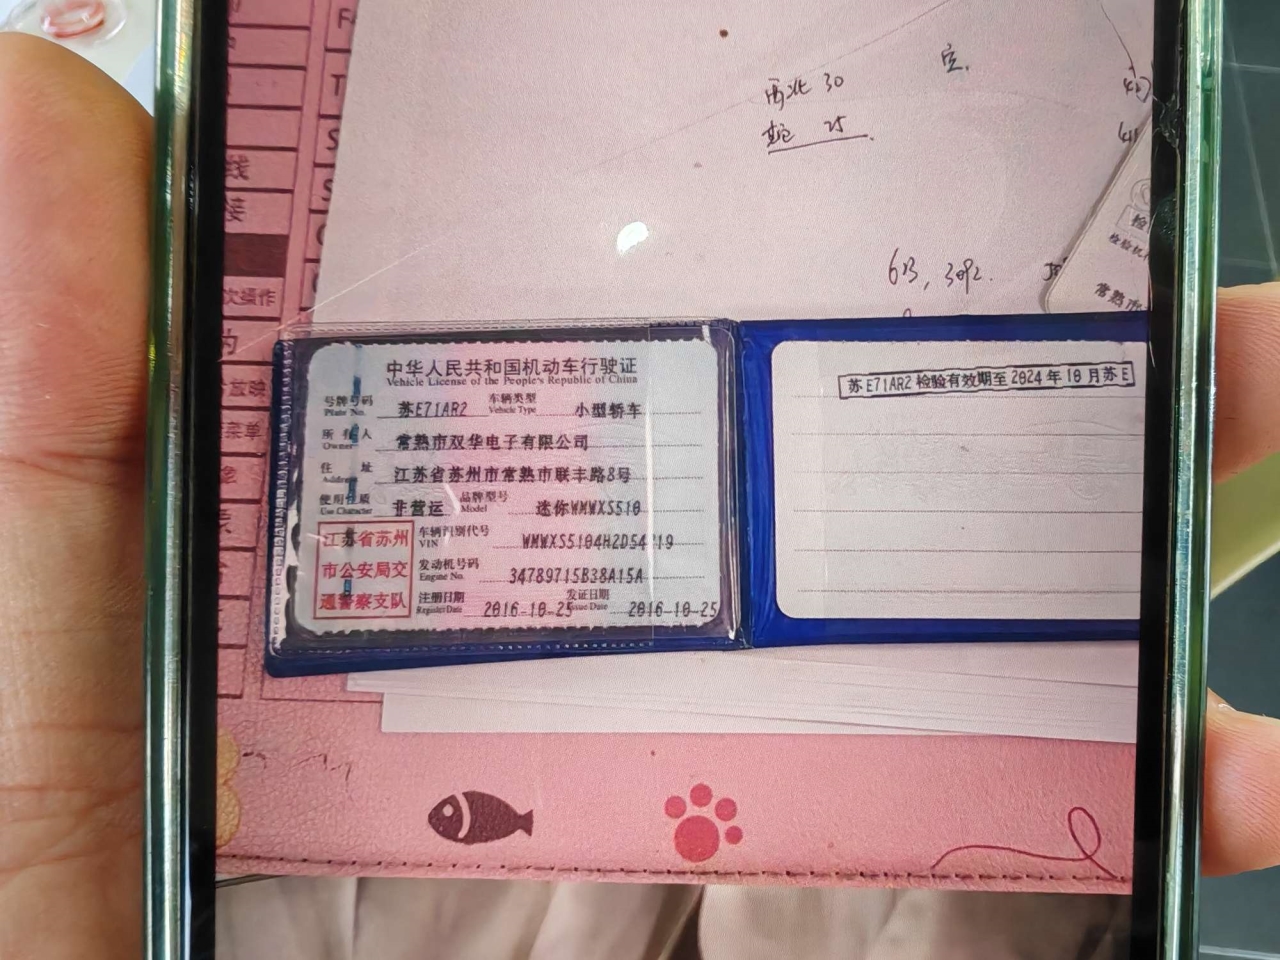 线
接
次操作
的
放映
菜单
西北 30
25
613, 392.
检
检验机
常熟市
中华人民共和国机动车行驶证
Vehicle License of the People's Republic of China
号牌号码 苏E71AR2 车辆类型 小型轿车
Plate No. Vehicle Type
所有人 常熟市双华电子有限公司
Owner
住址 江苏省苏州市常熟市联丰路8号
Address
使用性质 非营运 品牌型号 迷你WMWXS510
Use Character Model
江苏省苏州
市公安局交
通警察支队
车辆识别代号
VIN
发动机号码 34789715B38A15A
Engine No.
注册日期 2016-10-25 发证日期 2016-10-25
Register Date Issue Date
苏E71AR2 检验有效期至 2024 年 10 月 苏E